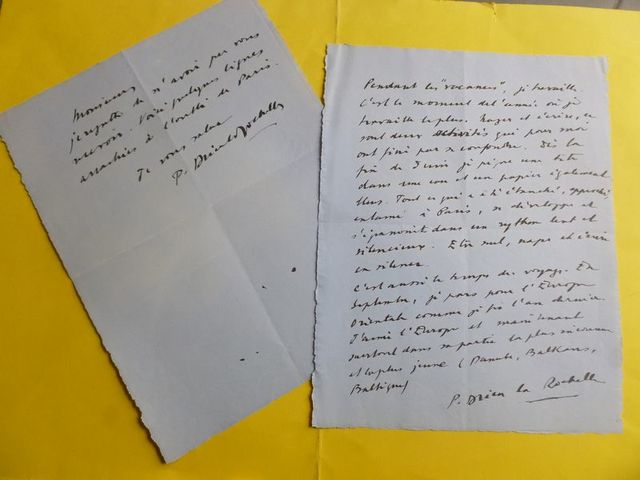 Monsieur,
je regrette de n'avoir pu vous
recevoir. Voici quelques lignes
arrachées à l'oubli de Paris.
Je vous salue
P. Drieu la Rochelle
Pendant les "vacances", je travaille.
C'est le moment de l'année où je
travaille le plus. Nager et écrire, ce
sont deux activités qui pour moi
ont fini par se confondre. Dès la
fin de Juin je pique une tête
dans une eau et un papier également
bleus. Tout ce qui a été ébauché, approché,
entamé à Paris, se développe et
s'épanouit dans un rythme lent et
silencieux. Etre seul, nager et écrire
en silence.
C'est aussi le temps des voyages. En
Septembre, je pars pour l'Europe
Orientale comme je fis l'an dernier.
J'aime l'Europe et maintenant
surtout dans sa partie la plus
et la plus jeune (Danube, Balkans,
Baltique)
P. Drieu la Rochelle